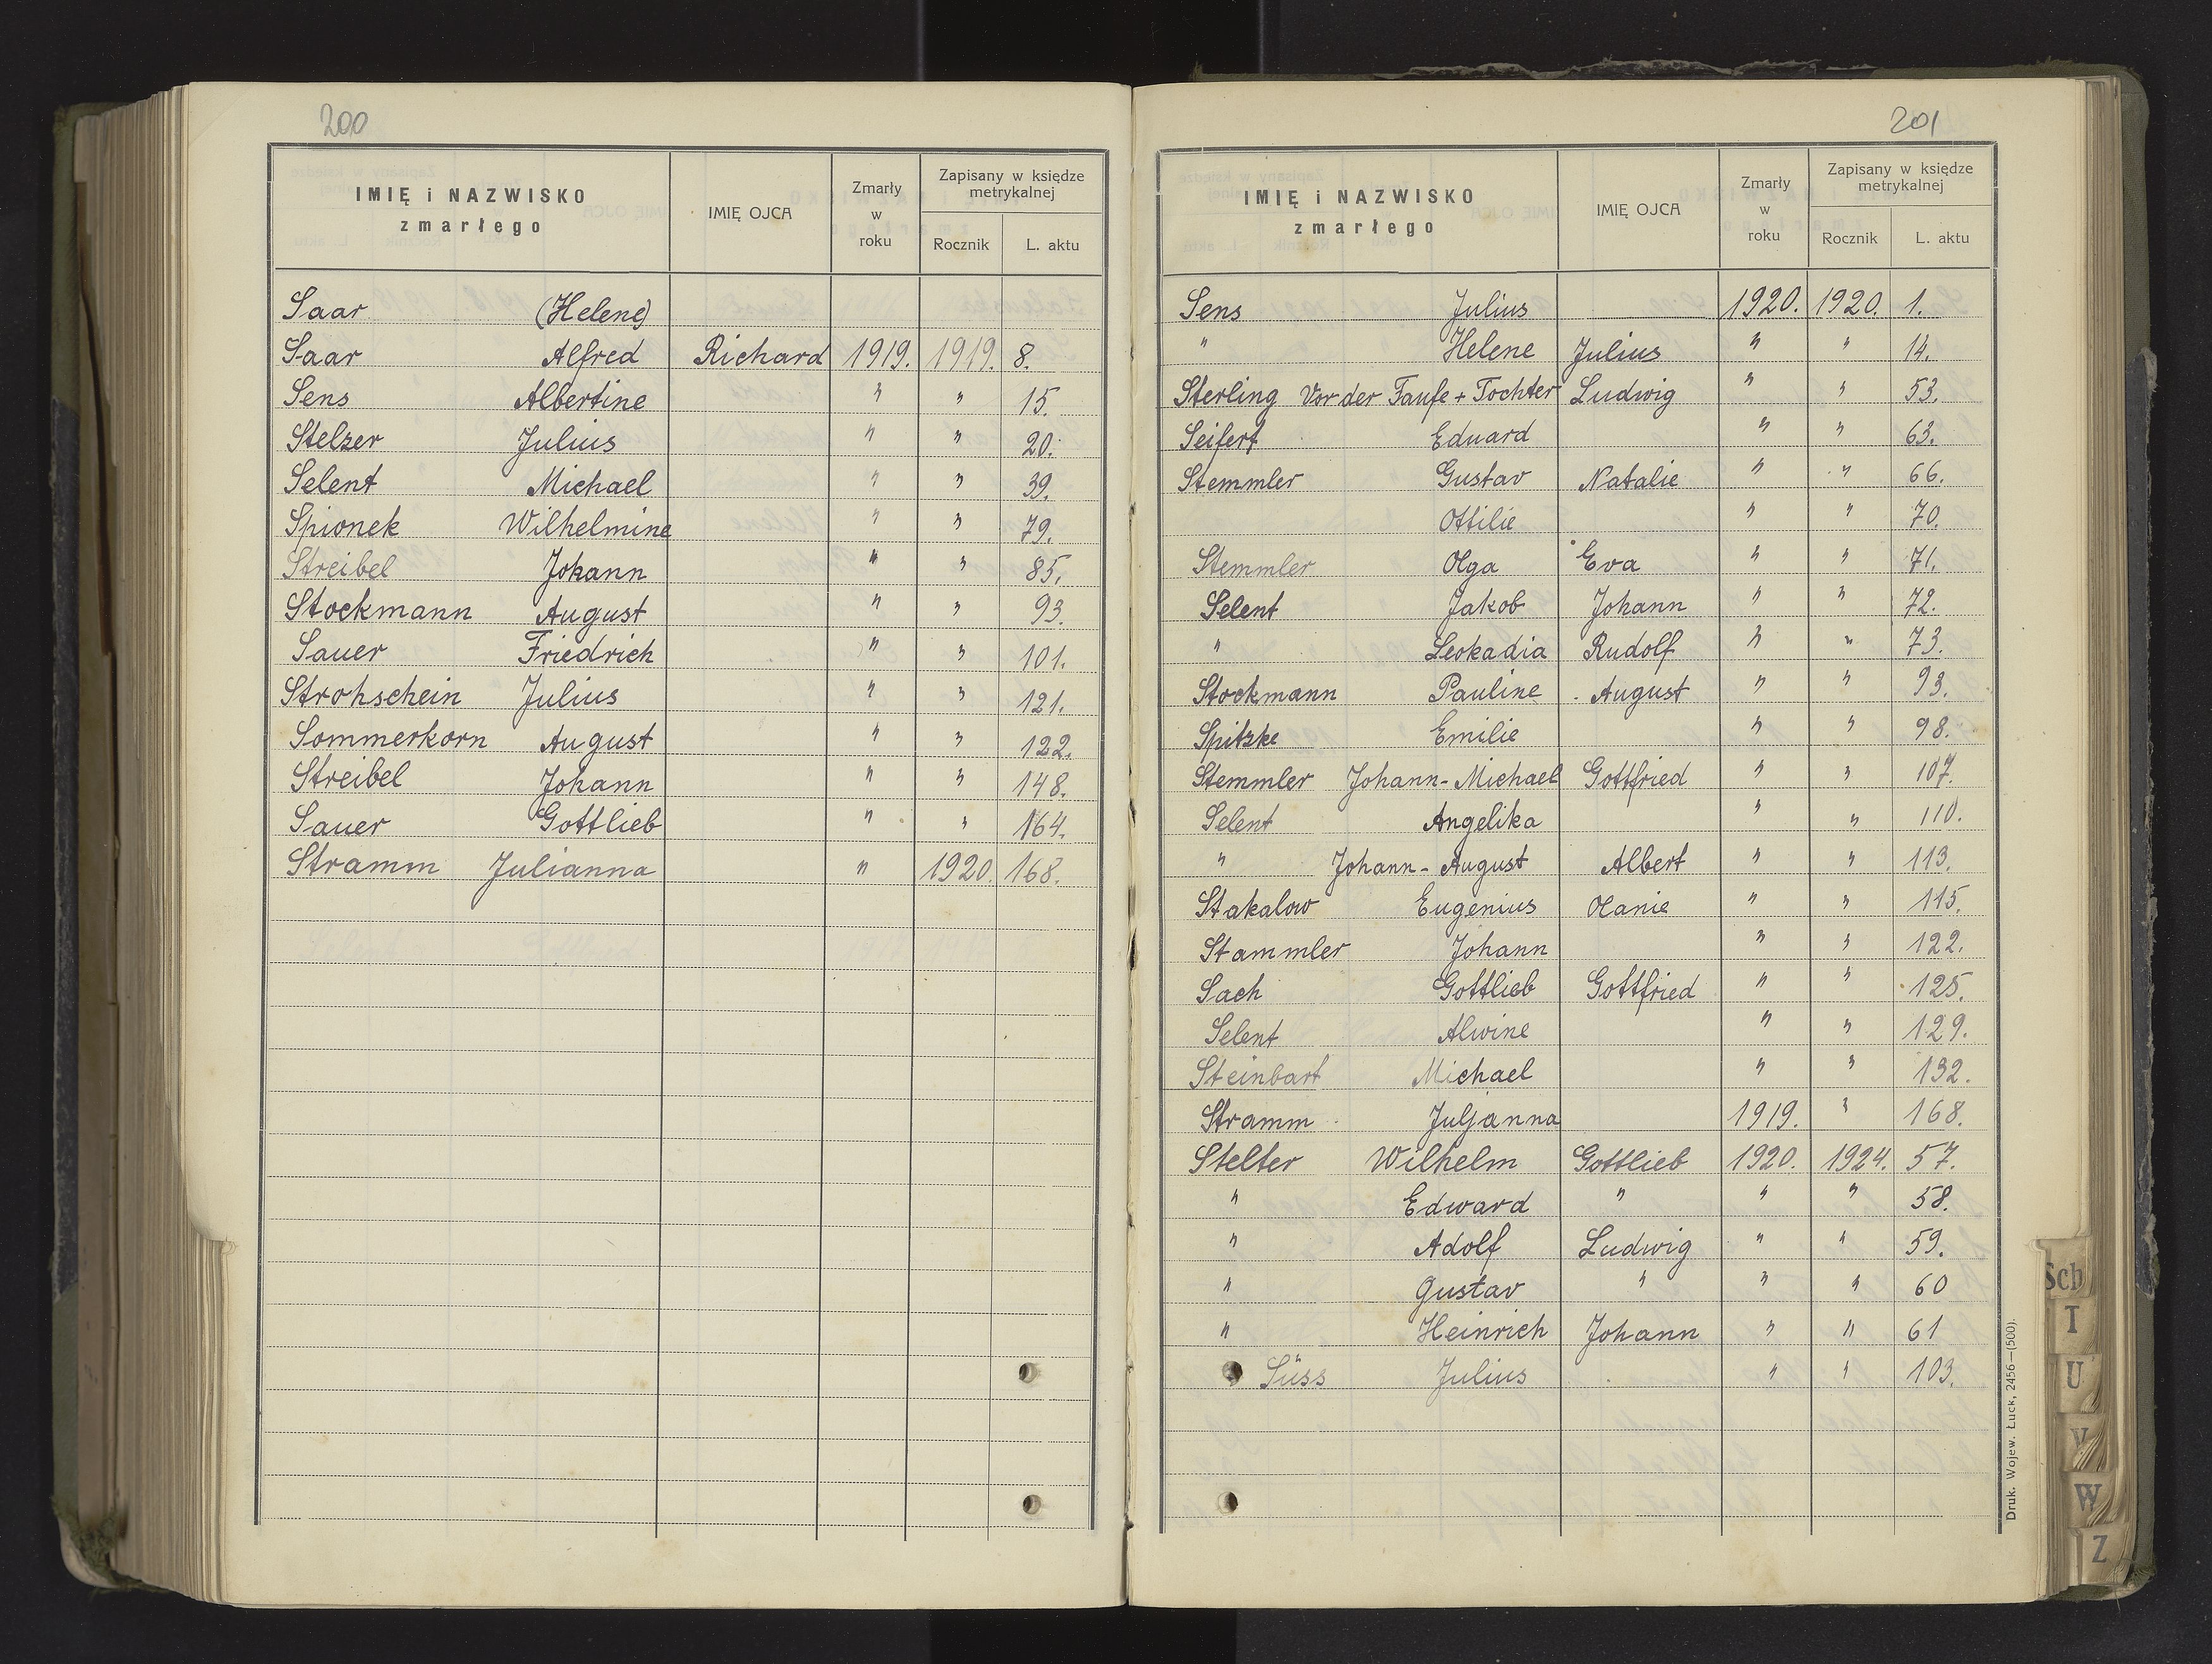 200
IMIĘ i NAZWISKO zmarłego IMIĘ OJCA Zmarły w roku Zapisany w księdze metrykalnej Rocznik L. aktu
Saar (Helene)
Saar Alfred Richard 1919. 1919. 8.
Sens Albertine " " 15.
Stelzer Julius " " 20.
Selent Michael " " 39.
Spionek Wilhelmine " " 79.
Streibel Johann " " 85.
Stockmann August " " 93.
Sauer Friedrich " " 101.
Strohschein Julius " " 121.
Sommerkorn August " " 122.
Streibel Johann " " 148.
Sauer Gottlieb " " 164.
Stramm Julianna " 1920. 168.
201
IMIĘ i NAZWISKO zmarłego IMIĘ OJCA Zmarły w roku Zapisany w księdze metrykalnej Rocznik L. aktu
Sens Julius 1920. 1920. 1.
" Helene Julius " " 14.
Sterling Vor der Taufe + Tochter Ludwig " " 53.
Seifert Eduard " " 63.
Stemmler Gustav Natalie " " 66.
Ottilie " " 70.
Stemmler Olga Eva " " 71.
Selent Jakob Johann " " 72.
" Leokadia Rudolf " " 73.
Stockmann Pauline August " " 93.
Spitzke Emilie " " 98.
Stemmler Johann-Michael Gottfried " " 107.
Selent Angelika " " 110.
" Johann-August Albert " " 113.
Stakalow Eugenius Olanie " " 115.
Stammler Johann " " 122.
Sach Gottlieb Gottfried " " 125.
Selent Alwine " " 129.
Steinbart Michael " " 132.
Stramm Juljanna 1919. " 168.
Stelter Wilhelm Gottlieb 1920. 1924. 57.
" Edward " " " 58.
" Adolf Ludwig " " 59.
" Gustav " " " 60
" Heinrich Johann " " 61
Süss Julius " " 103.
Druk. Wojew. Łuck, 2456—(500).
Sch
T
U
V
W
Z